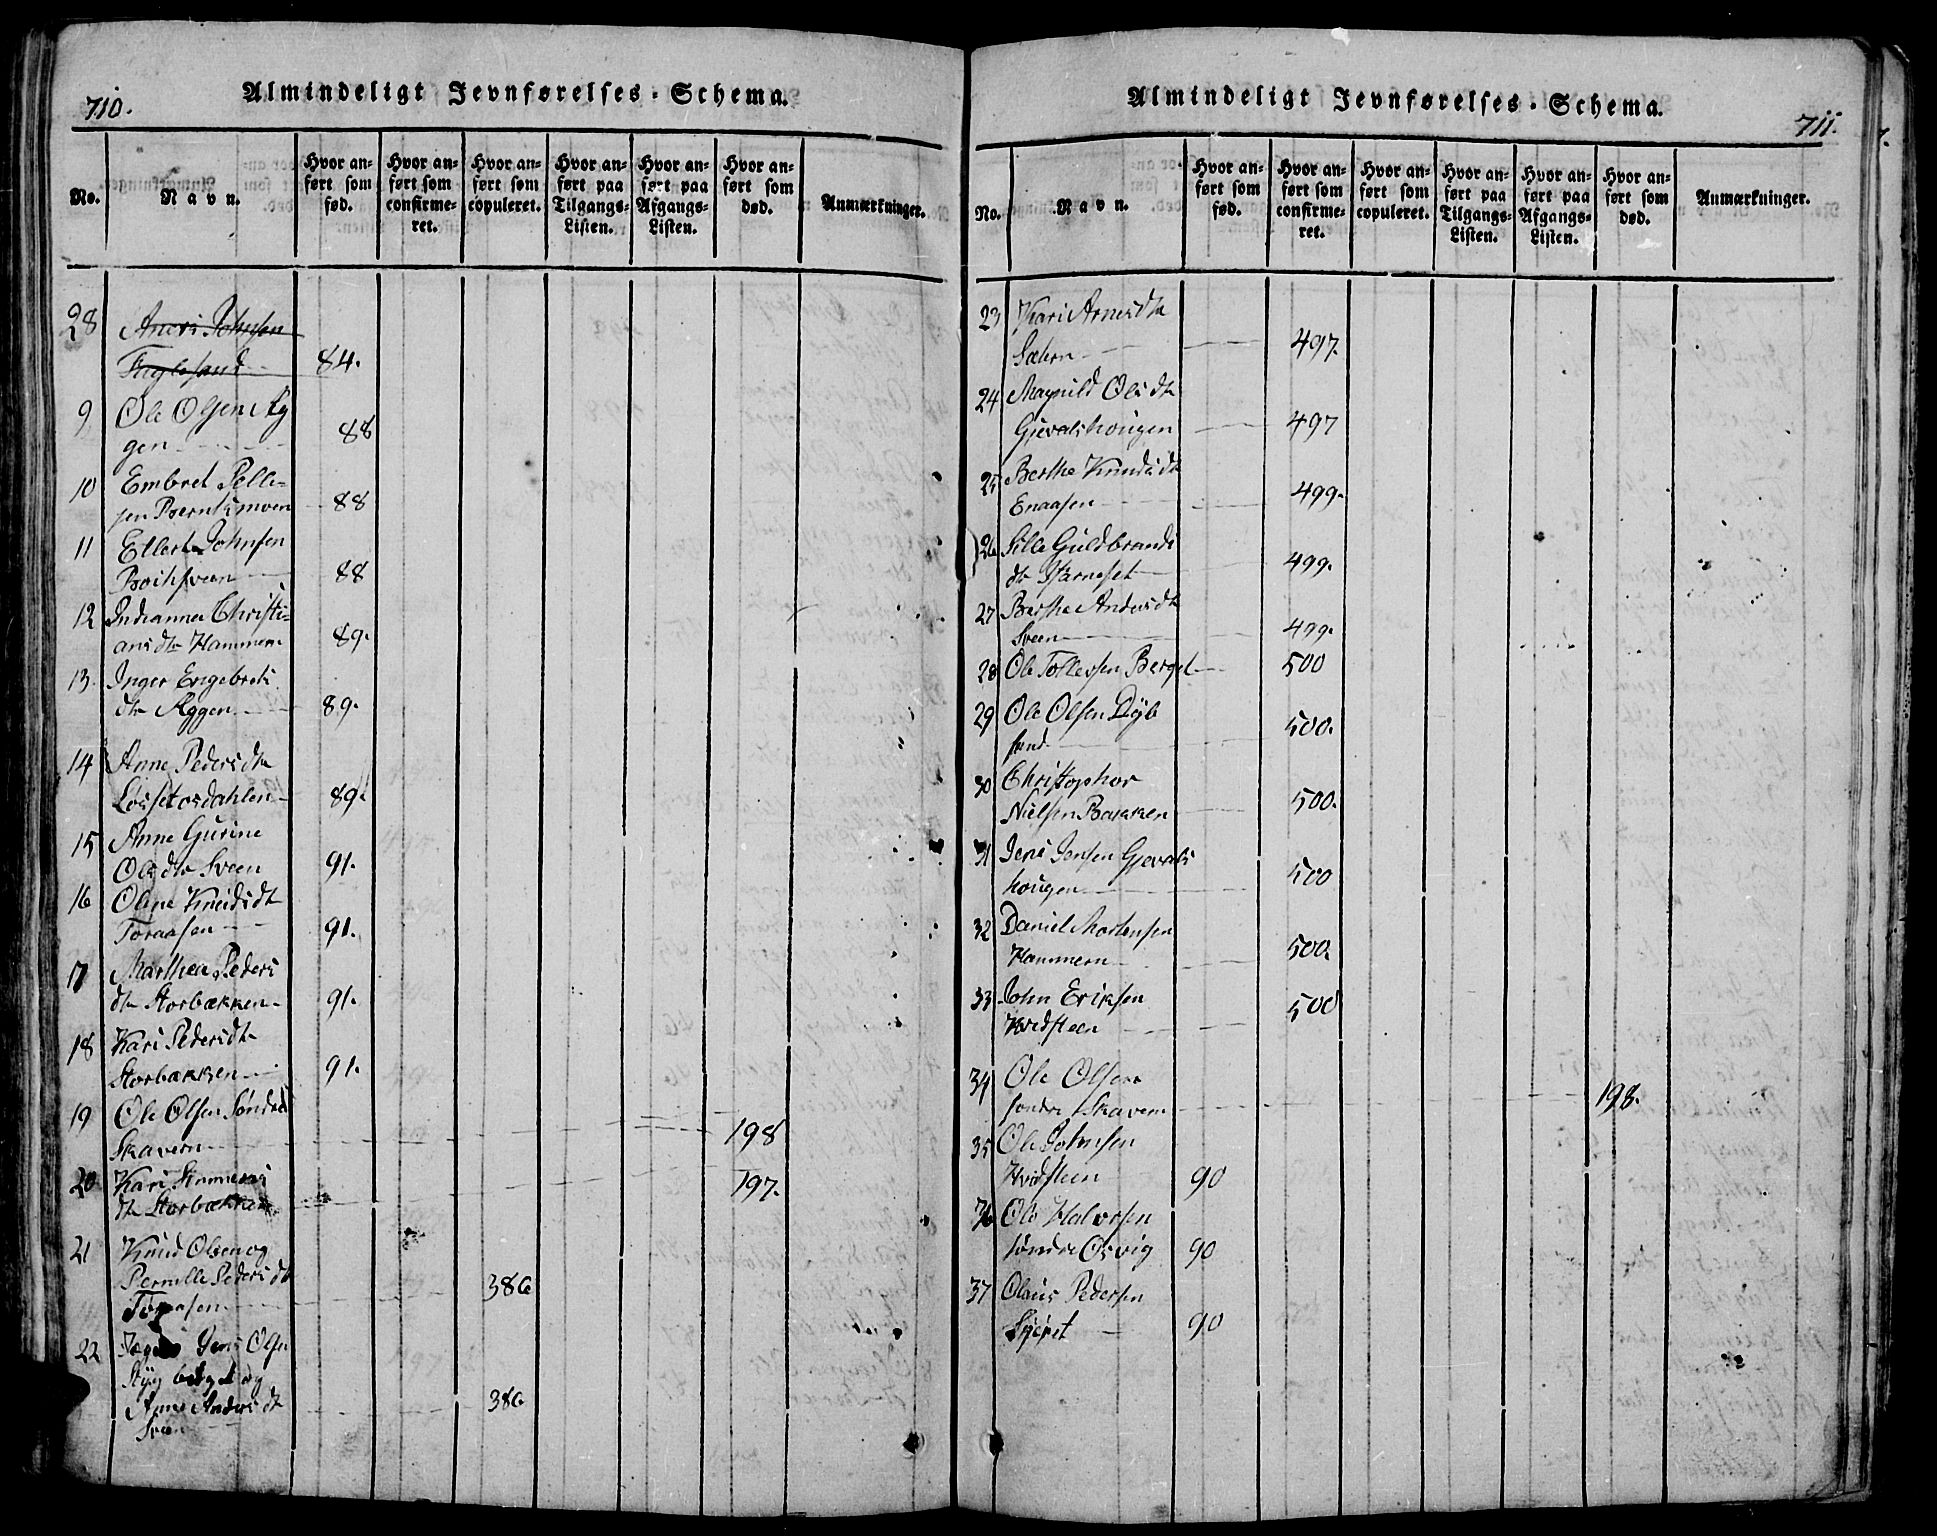 710.
Almindeligt Jevnførelses-Schema.
No.
Navn.
Hvor an-
ført som
fød.
Hvor an-
ført som
confirme-
ret.
Hvor an-
ført som
copuleret.
Hvor an-
ført paa
Tilgangs-
Listen.
Hvor an-
ført paa
Afgangs-
Listen.
Hvor an-
ført som
død.
Anmærkninger.
28 Johnsen
Fuglesand 84.
9 Ole Olsen Ag
gen 88
10 Embret Pelle-
sen Berntsmoen 88
11 Ellert Johnsen
88
12 Indianna Christi-
ansdtr Hammern 89.
13. Inger Engebrets
dtr Aggen 89.
14 Anne Pedersdtr
Løssetosdahlen 89.
15 Anne Gurine
Olsdtr Sveen 91.
16 Oline Knudsdtr
Toraasen 91.
17 Marthea Peders
dtr Storbækken 91.
18 Kari Pedersdtr
Storbækken 91.
19 Ole Olsen Søndre
Skavern 198
20 Kari
dtr Storbækken 197.
21 Knud Olsen og
Pernille Pedersdtr 386
Toraasen
22 Jens Olsen
og
Anne Andersdtr 386
Sveen
Almindeligt Jevnførelses-Schema.
711.
No.
Navn.
Hvor an-
ført som
fød.
Hvor an-
ført som
confirme-
ret.
Hvor an-
ført som
copuleret.
Hvor an-
ført paa
Tilgangs-
Listen.
Hvor an-
ført paa
Afgangs-
Listen.
Hvor an-
ført som
død.
Anmærkninger.
23 Kari Arnesdtr
Sætern 497.
24 Magnild Olsdtr
Gjevalshougen 497
25 Berthe Knudsdtr
Enaasen 499.
26 Sille Guldbrands
dtr Skarnset 499.
27 Berthe Andersdtr
Sveen 499.
28 Ole Tollefsen Berget 500
29 Ole Olsen Dyb
sand 500.
30 Christopher
Nielsen Bakken 500.
31 Jens Jensen Gjevals
hougen 500
32 Daniel Mortensen
Hammern 500.
33 John Eriksen
Hvidsteen 500
34 Ole Olsen
søndre Skavern 198.
35 Ole Johnsen
Hvidsteen 90
36 Ole Halvorsen
søndre Osvig 90
37 Olaus Pedersen
90